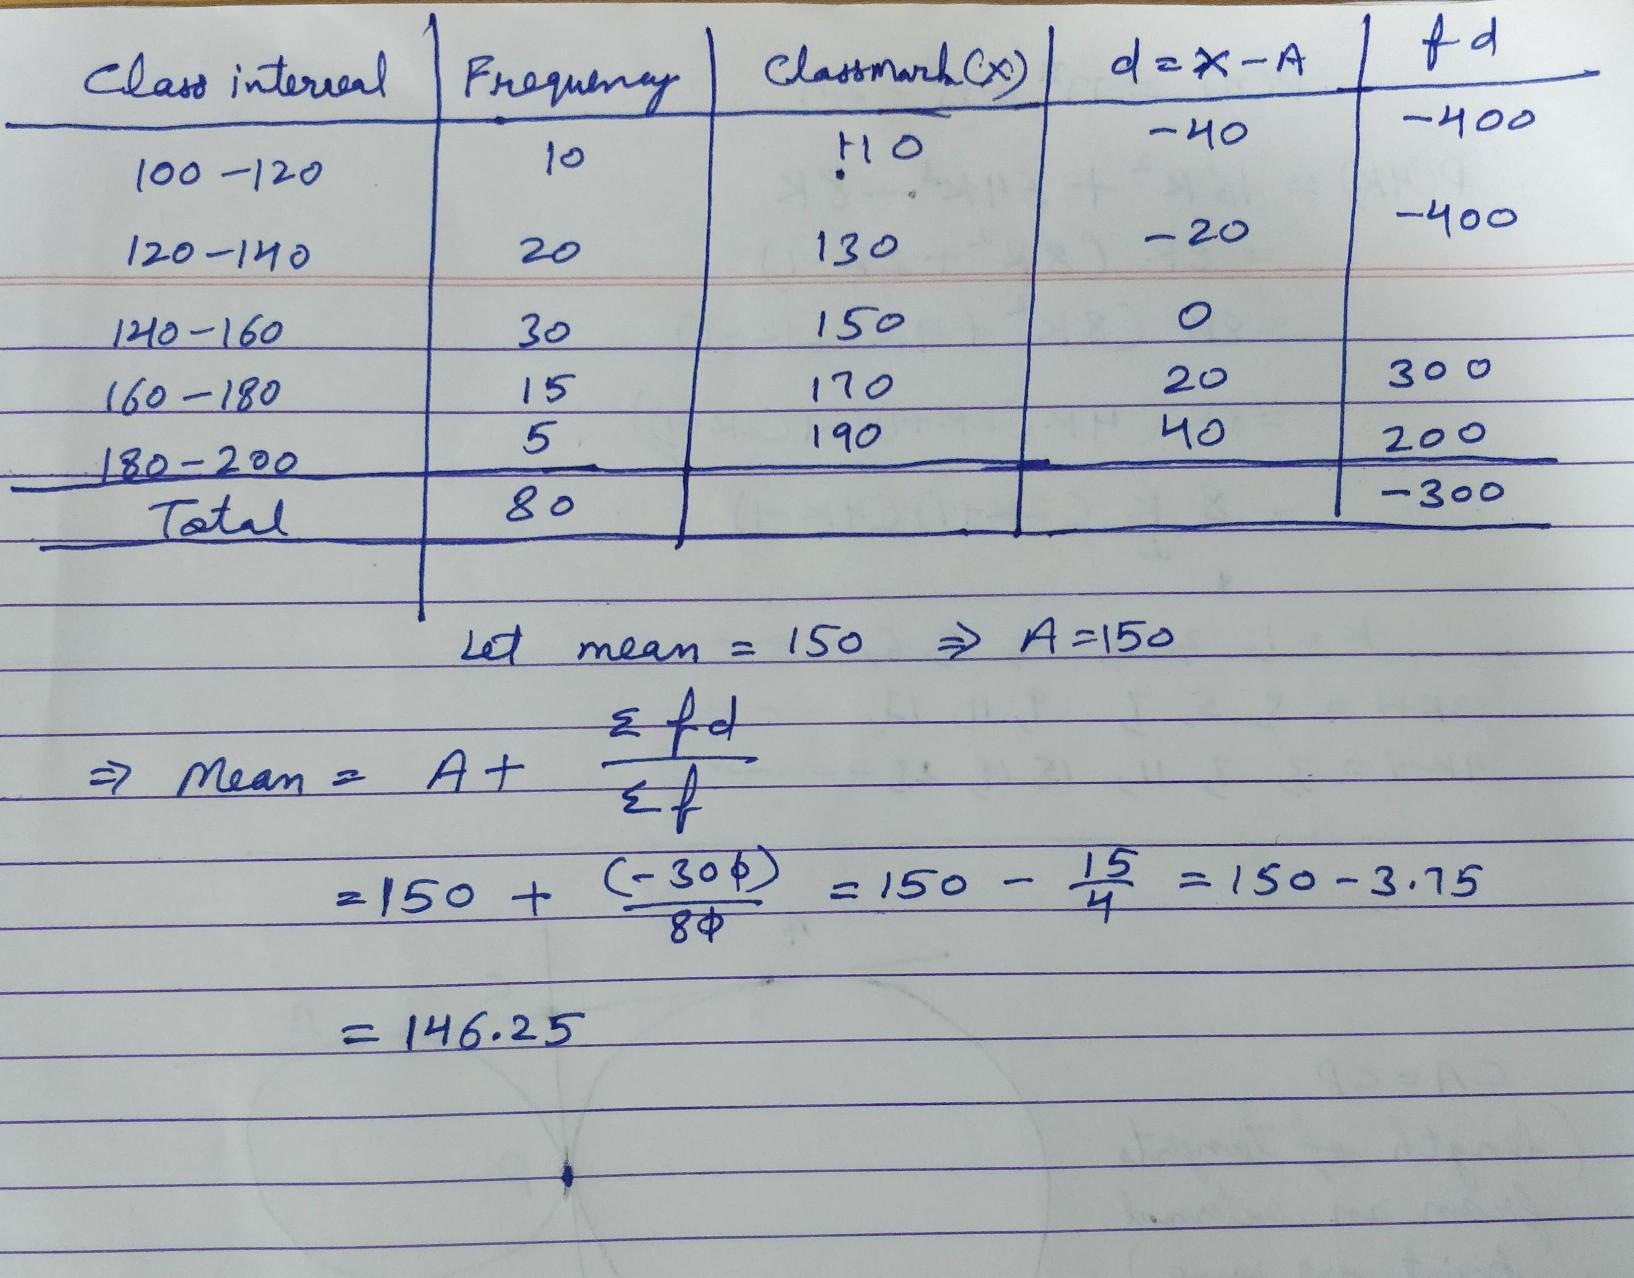 Class interval Frequency Classmark (x) d = x - A fd
100 - 120 10 110 -40 -400
120 - 140 20 130 -20 -400
140 - 160 30 150 0
160 - 180 15 170 20 300
180 - 200 5 190 40 200
Total 80 -300
Let mean = 150 ⇒ A = 150
⇒ Mean = A + Σfd / Σf
= 150 + (-300) / 80 = 150 - 15/4 = 150 - 3.75
= 146.25